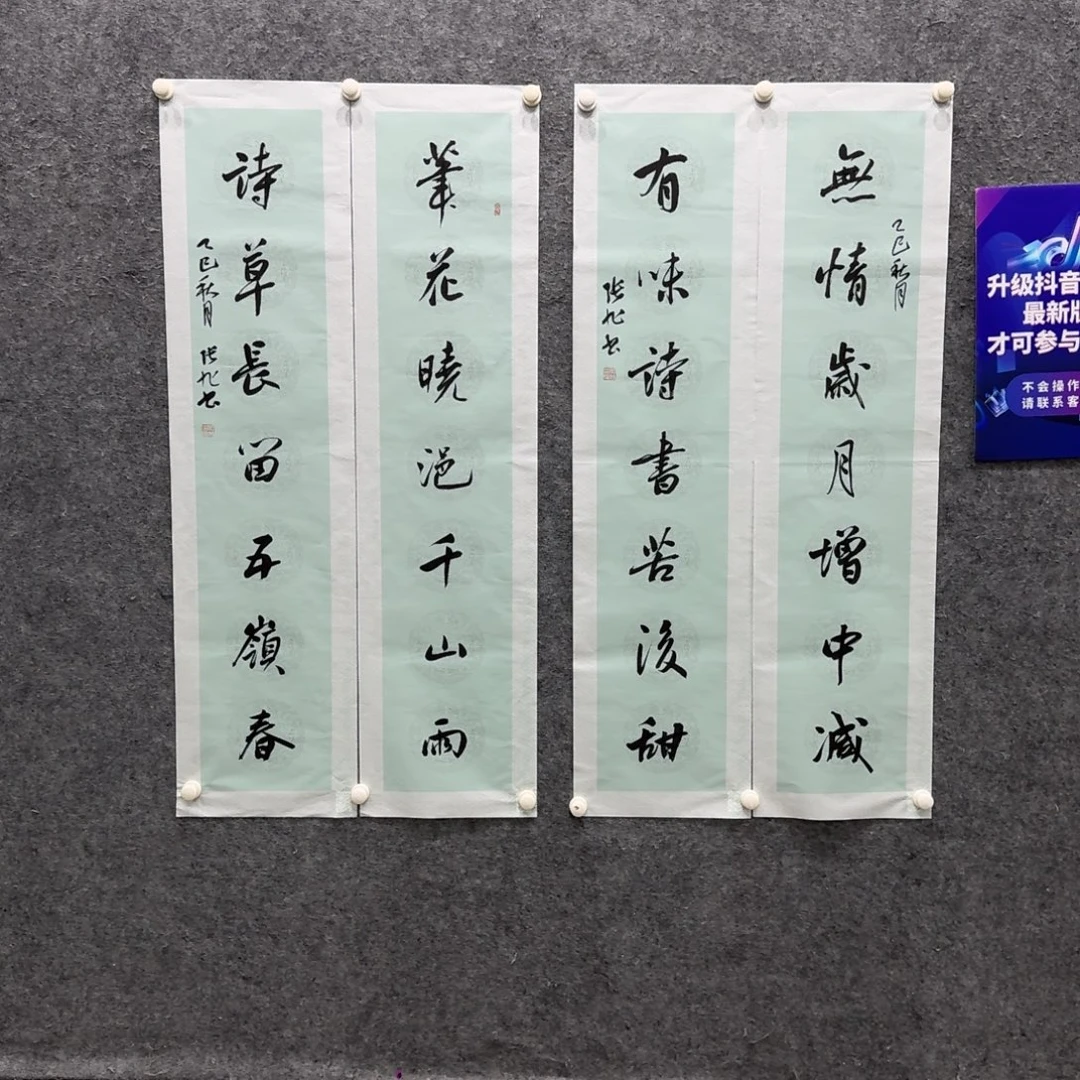 無情歲月增中減
乙巳秋月
有味詩書苦後甜
筆花曉浥千山雨
詩草長留五嶺春
乙巳秋月
升级抖音
最新版
才可参与
不会操作
请联系客